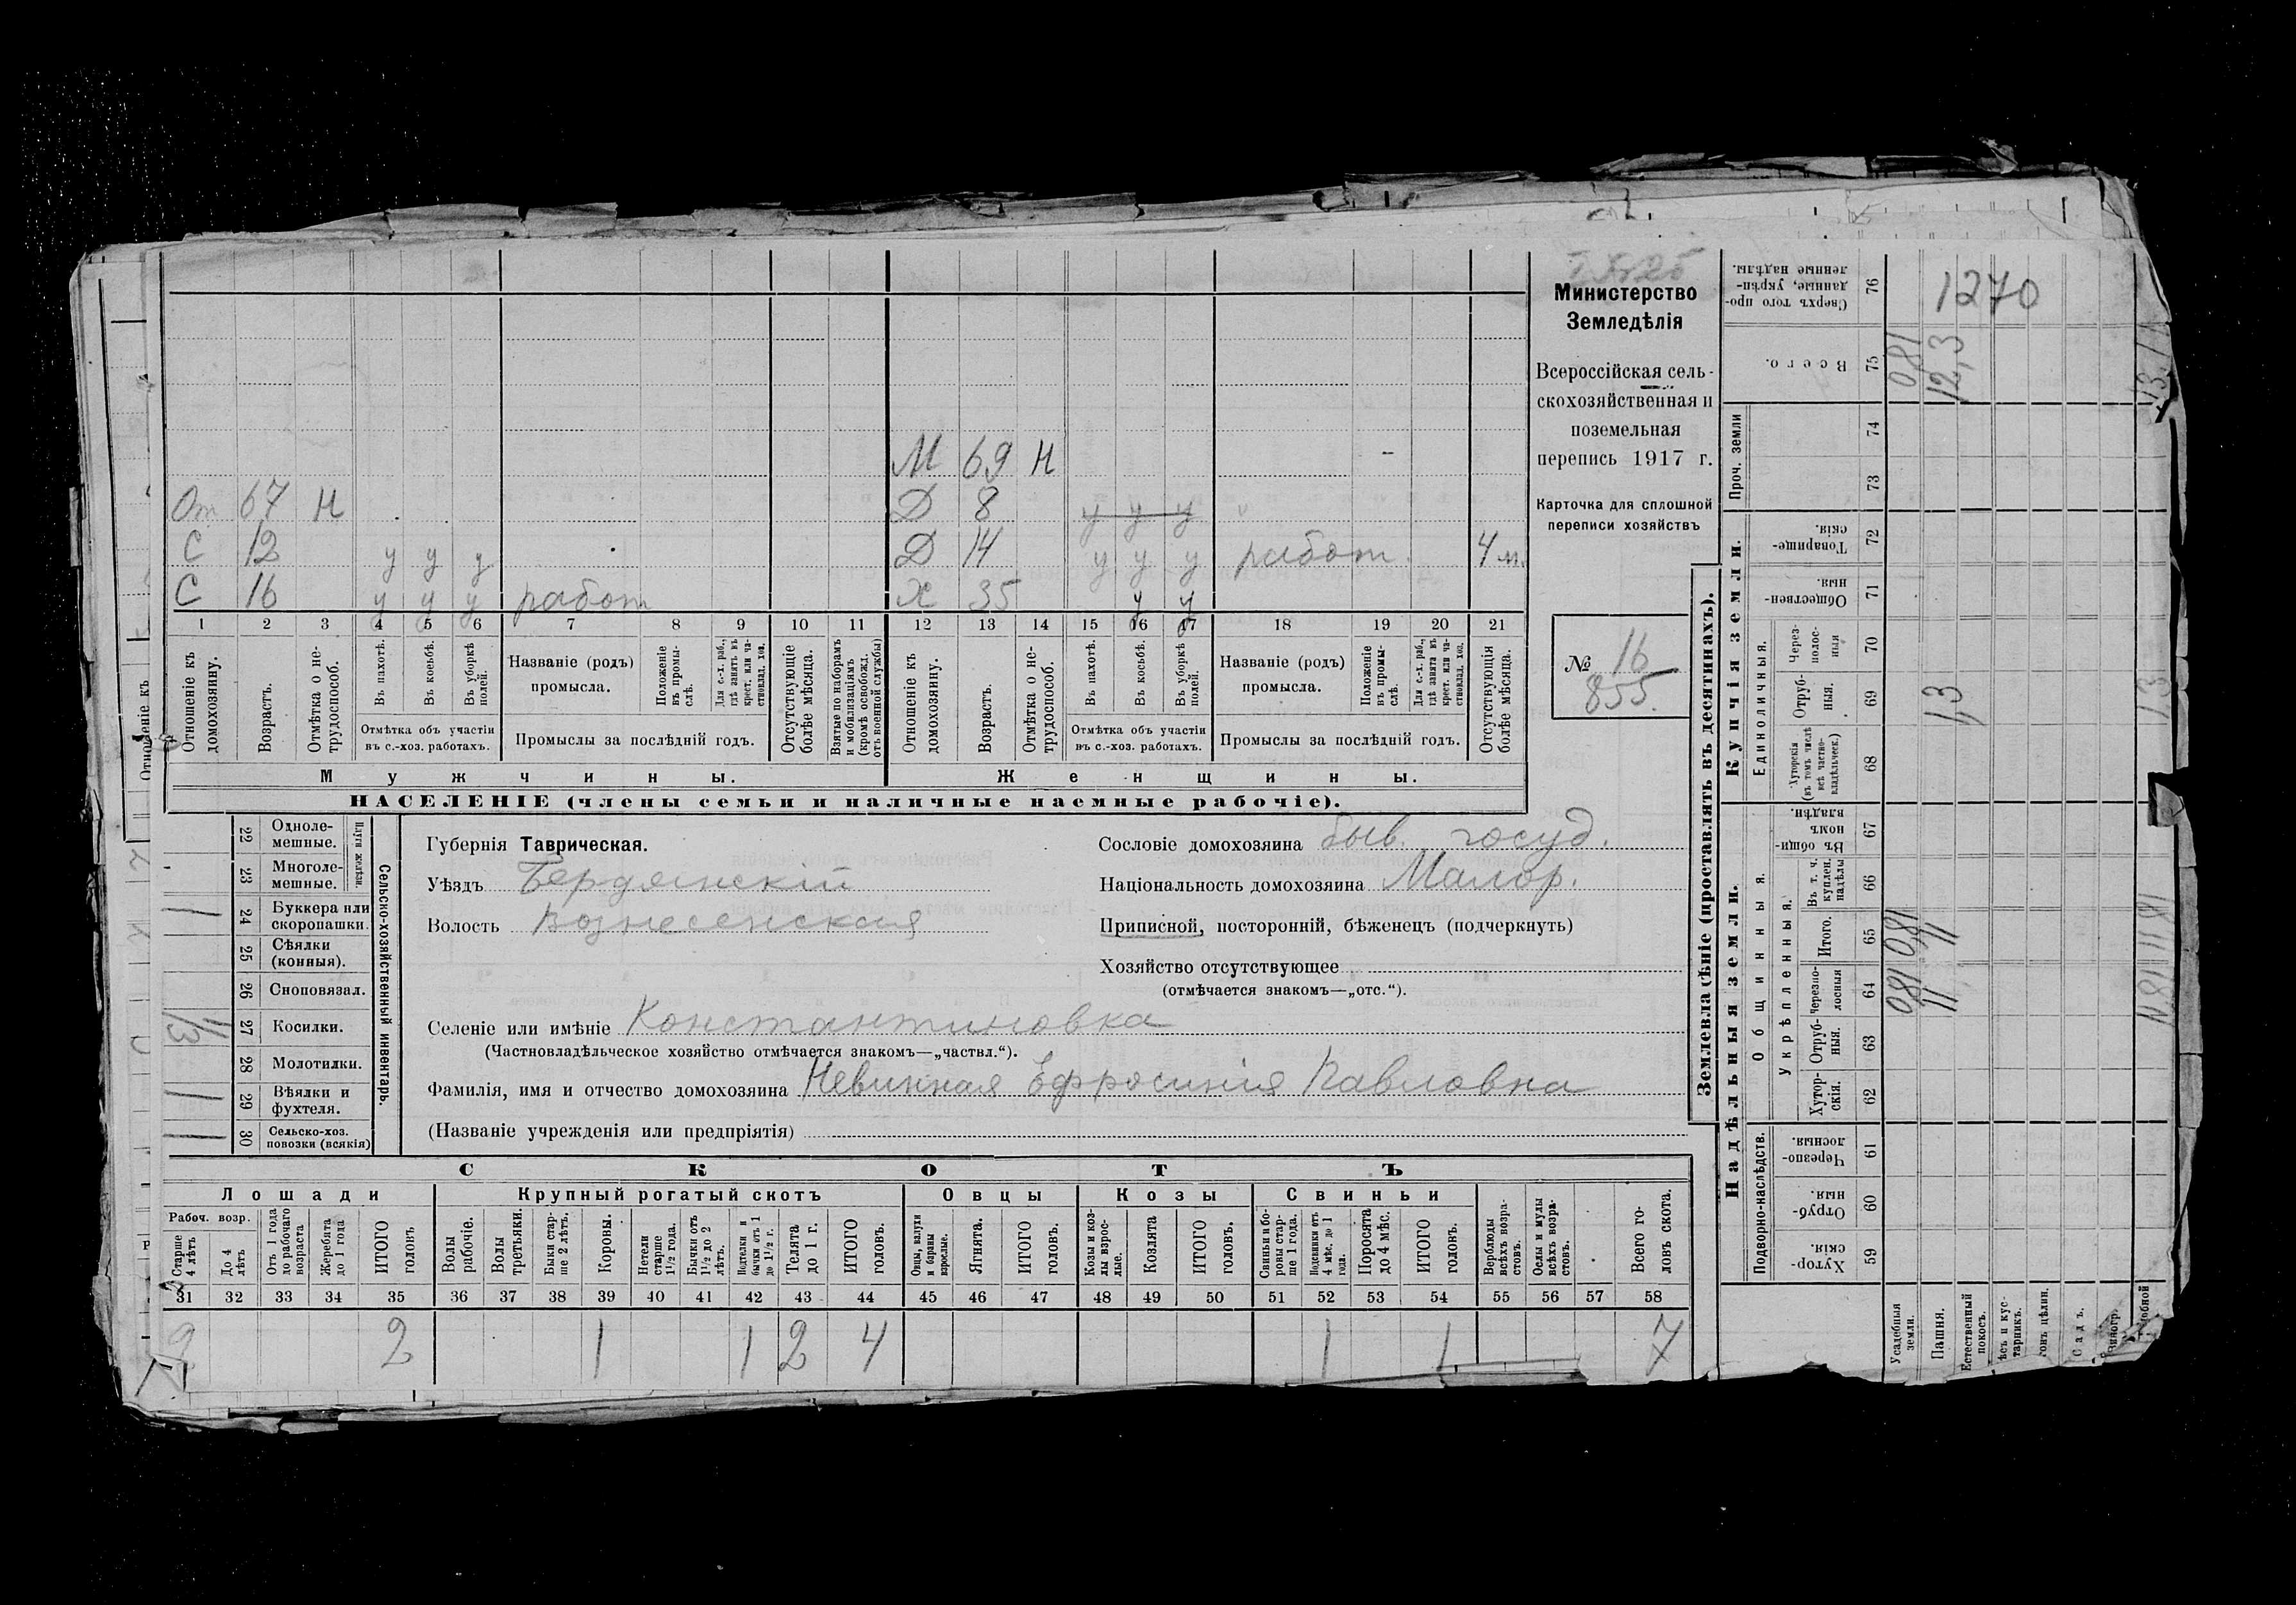 Министерство
Земледѣлія
Всероссійская сель-
скохозяйственная и
поземельная
перепись 1917 г.
Карточка для сплошной
переписи хозяйствъ
№ 16
855.
М 69 Н
От 67 Н
Д 8 у у у
С 12 у у у
Д 14 у у у работ. 4 м.
С 16 у у у работ
Х 35 у у
1 2 3 4 5 6 7 8 9 10 11 12 13 14 15 16 17 18 19 20 21
Отношеніе къ домохозяину.
Возрастъ.
Отмѣтка о не-трудоспособ.
Въ пахотѣ.
Въ косьбѣ.
Въ уборкѣ полей.
Отмѣтка объ участіи
въ с.-хоз. работахъ.
Названіе (родъ)
промысла.
Положеніе въ промы-слѣ.
Для с.-х. раб., гдѣ занятъ въ крест. или ча-стновлад. хоз.
Промыслы за послѣдній годъ.
Отсутствующіе болѣе мѣсяца.
Взятые по наборамъ и мобилизаціямъ (кромѣ освобожд. отъ военной службы)
Отношеніе къ домохозяину.
Возрастъ.
Отмѣтка о не-трудоспособ.
Въ пахотѣ.
Въ косьбѣ.
Въ уборкѣ полей.
Отмѣтка объ участіи
въ с.-хоз. работахъ.
Названіе (родъ)
промысла.
Положеніе въ промы-слѣ.
Для с.-х. раб., гдѣ занята въ крест. или ча-стновлад. хоз.
Промыслы за послѣдній годъ.
Отсутствующія болѣе мѣсяца.
Мужчины.
Женщины.
НАСЕЛЕНІЕ (члены семьи и наличные наемные рабочіе).
Сельско-хозяйственный инвентарь.
Плуги желѣзн.
22 Одноле-мешные.
23 Многоле-мешные.
1 24 Буккера или скоропашки.
25 Сѣялки (конныя).
26 Сноповязал.
1/3 27 Косилки.
28 Молотилки.
1 29 Вѣялки и фухтеля.
1 30 Сельско-хоз. повозки (всякія)
Губернія Таврическая.
Уѣздъ Бердянскій
Волость Вознесенская
Сословіе домохозяина быв. госуд.
Національность домохозяина Малор.
Приписной, посторонній, бѣженецъ (подчеркнуть)
Хозяйство отсутствующее
(отмѣчается знакомъ—„отс.“).
Селеніе или имѣніе Константиновка
(Частновладѣльческое хозяйство отмѣчается знакомъ—„частвл.“).
Фамилія, имя и отчество домохозяина Невинная Ефросинія Павловна
(Названіе учрежденія или предпріятія)
СКОТЪ
Лошади
Крупный рогатый скотъ
Овцы
Козы
Свиньи
Рабоч. возр.
Старше 4 лѣтъ
До 4 лѣтъ
Отъ 1 года до рабочаго возраста
Жеребята до 1 года
ИТОГО головъ
Волы рабочіе.
Волы третьяки.
Быки стар-ше 2 лѣтъ.
Коровы.
Нетели старше 1½ года.
Бычки отъ 1½ до 2 лѣтъ.
Подтелки и бычки отъ 1 до 1½ г.
Телята до 1 г.
ИТОГО головъ.
Овцы, валухи и бараны взрослые.
Ягнята.
ИТОГО головъ.
Козы и коз-лы взрос-лые.
Козлята
ИТОГО головъ.
Свиньи и бо-ровы стар-ше 1 года.
Подсвинки отъ 4 мѣс. до 1 года.
Поросята до 4 мѣс.
ИТОГО головъ.
Верблюды всѣхъ возра-стовъ.
Ослы и мулы всѣхъ возра-стовъ.
Всего го-ловъ скота.
31 32 33 34 35 36 37 38 39 40 41 42 43 44 45 46 47 48 49 50 51 52 53 54 55 56 57 58
2 2 1 1 2 4 1 1 7
Землевладѣніе (проставлять въ десятинахъ).
Надѣльныя земли.
Купчія земли.
Проч. земли
Подворно-наслѣдств.
Общинныя.
Укрѣпленныя.
Единоличныя.
76 Сверхъ того про-данные, укрѣп-ленные надѣлы. 1270
75 Всего. 081 12,3 13,11
74
73
72 Товарище-скія.
71 Обществен-ныя.
70 Через-полос-ныя
69 Отруб-ныя. 1,3 1,3
68 Хуторскія (въ томъ числѣ всѣ частно-владѣльческ.)
67 Въ общин-номъ владѣн.
66 Въ т. ч. куплен. надѣлы
65 Итого. 081 11 11,81
64 Черезпо-лосныя 081 11 11,81
63 Отруб-ныя.
62 Хутор-скія.
61 Черезпо-лосныя.
60 Отруб-ныя.
59 Хутор-скія.
Усадебныя земли.
Пашня.
Естественный покосъ.
Садъ.